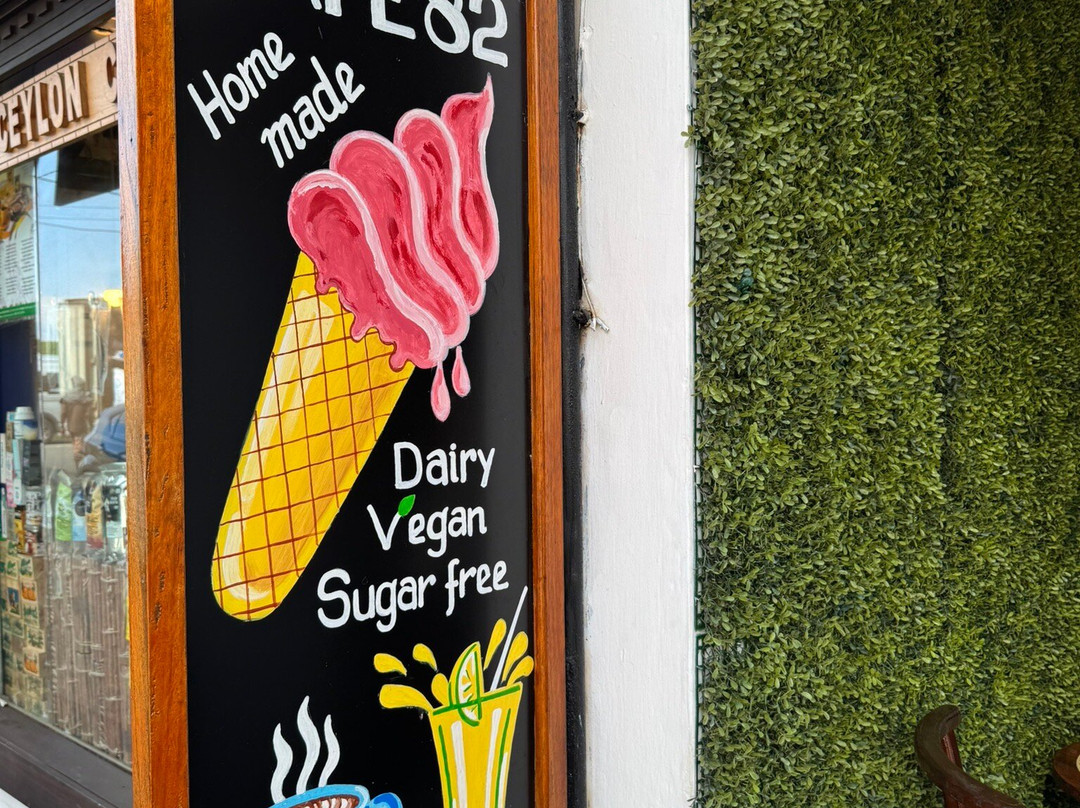 82
Home
made
Dairy
Vegan
Sugar free
CEYLON